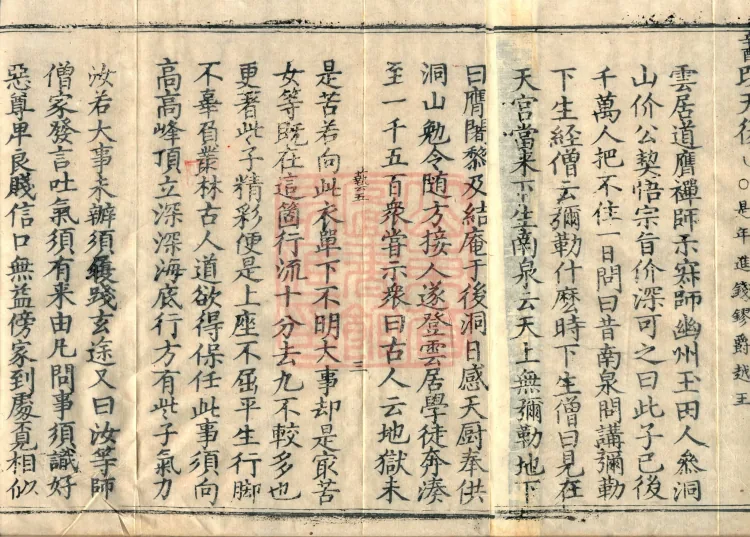 是年進錢鏐爵越王
雲居道膺禪師示寂師幽州玉田人叅洞
山价公契悟宗旨价深可之曰此子已後
千萬人把不住一日問曰昔南泉問講彌勒
下生經僧云彌勒什麽時下生僧曰見在
天宮當来下生南泉云天上無彌勒地下
曰膺闍黎及結庵于後洞日感天厨奉供
洞山勉令随方接人遂登雲居學徒奔湊
至一千五百衆嘗示衆曰古人云地獄未
三
是苦若向此衣單下不明大事却是㝡苦
女等既在這箇行流十分去九不較多也
更著些子精彩便是上座不屈平生行脚
不辜負叢林古人道欲得保任此事須向
高高峰頂立深深海底行方有些子氣力
汝若大事未辦須履踐玄途又曰汝等師
僧家發言吐氣須有来由凡問事須識好
惡尊卑良賤信口無益傍家到處覔相似